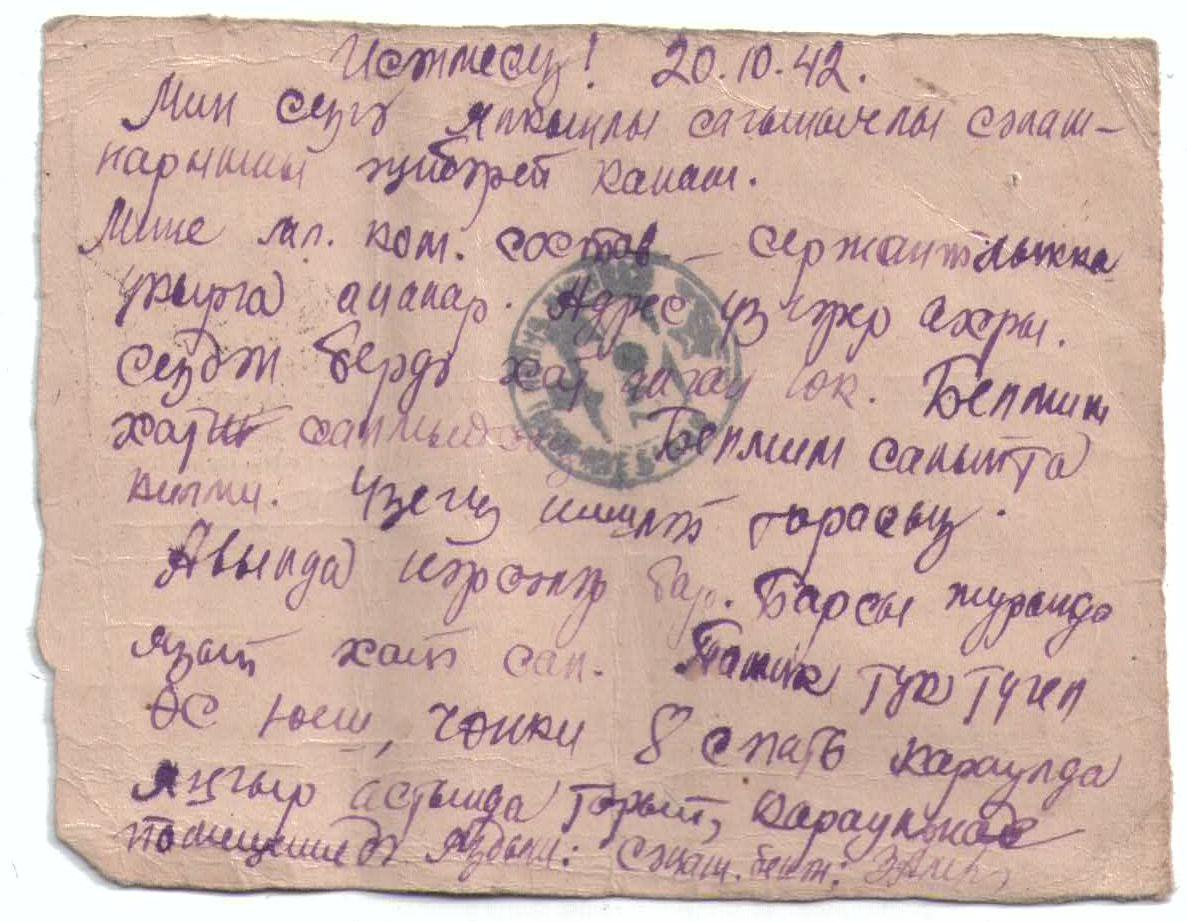 Исәнмесез! 20.10.42.
Мин сезгә ялкынлы сагынычлы сәлам-
нарымны җибәреп калам.
Мине мл. ком. состав – сержантлыкка
укырга алалар. Адрес үзгәрер ахры.
Сездән бердә хат алган юк. Белмим
хат салмыйсыз Белмим салынта
килми. Үзегез ничек торасыз.
Авылда нәрсәләр бар. Барсы турында
язып хат сал. тук түгел
өс юеш, чөнки 8 сәгать караулда
яңгыр астында торып, караульное
помещениедә яздым: Сәлам. белән: